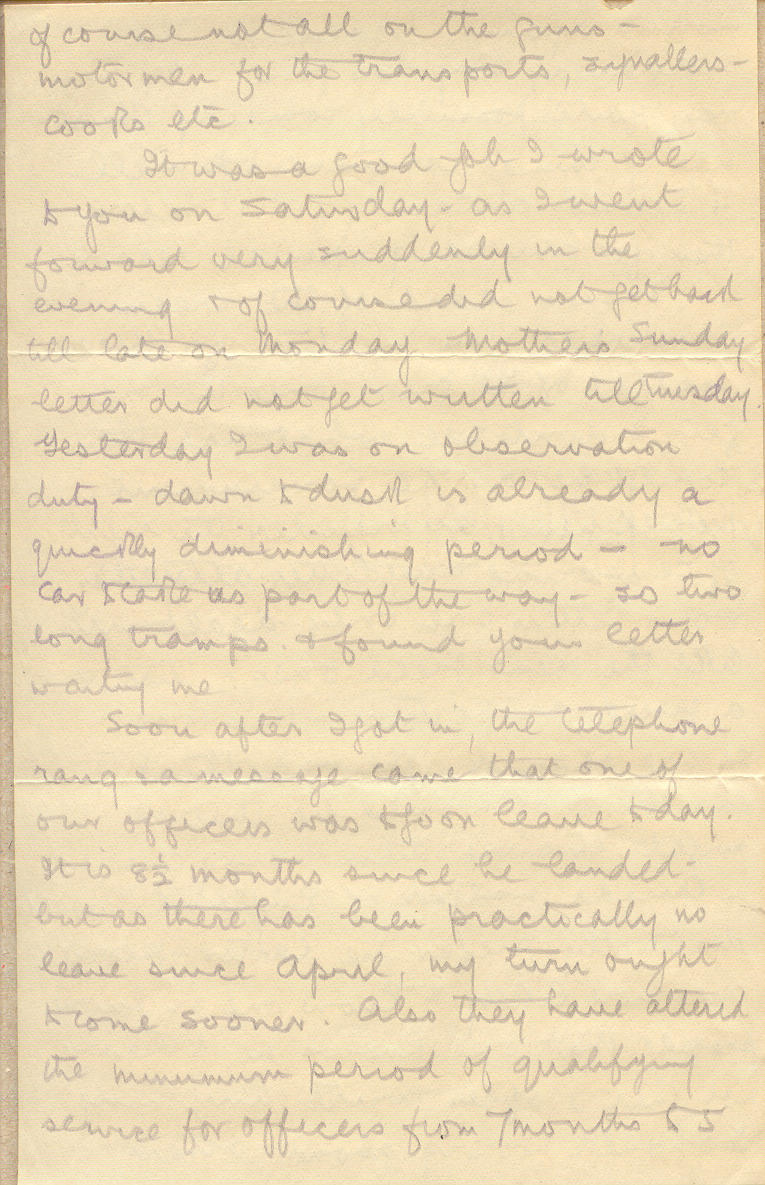 of course not all on the guns -
motor men for the transports, signallers -
cooks etc.
It was a good job I wrote
to you on Saturday - as I went
forward very suddenly in the
evening & of course did not get back
till late on Monday Mothers Sunday
letter did not get written till Tuesday.
Yesterday I was on observation
duty - dawn to dusk is already a
quickly diminishing period - no
car to take us part of the way - so two
long tramps. & found your letter
waiting me
Soon after I got in, the telephone
rang & a message came that one of
our officers was to go on leave today.
It is 8½ months since he landed -
but as there has been practically no
leave since April, my turn ought
to come sooner. Also they have altered
the minimum period of qualifying
service for officers from 7 months to 5